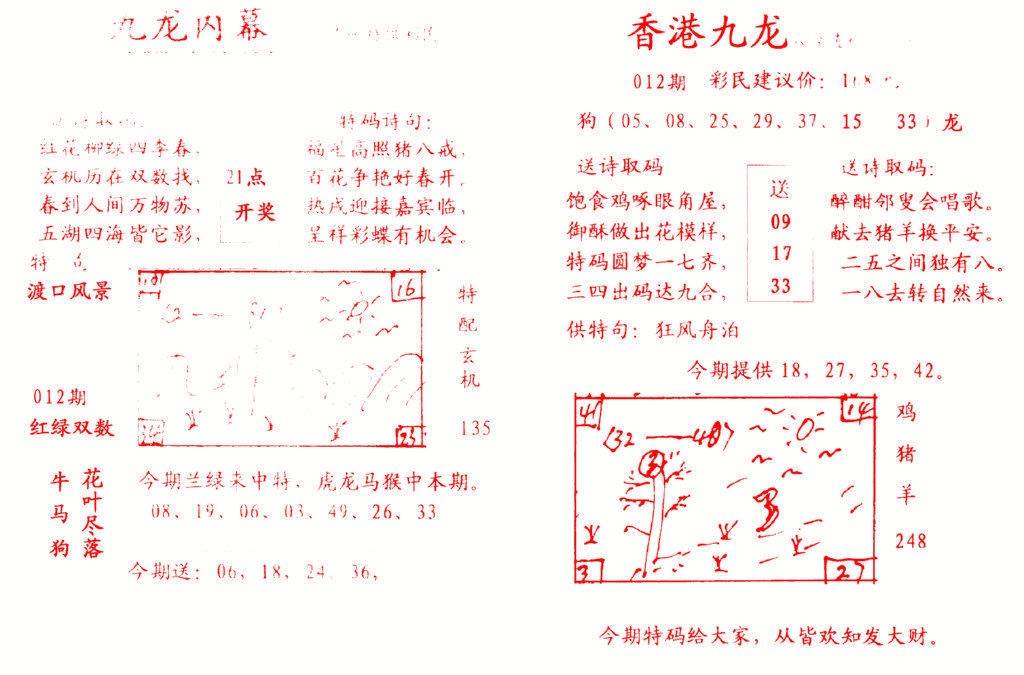 九龙内幕
特码诗句：
红花柳绿四季春，
玄机历在双数找，
春到人间万物苏，
五湖四海皆它影，
21点
开奖
福星高照猪八戒，
百花争艳好春开，
热戌迎接嘉宾临，
呈祥彩蝶有机会。
特
渡口风景
16
23
特配玄机
135
012期
红绿双数
牛马狗
花叶尽落
今期兰绿来中特、虎龙马猴中本期。
08、19、06、03、49、26、33
今期送：06，18，24，36，
香港九龙
012期 彩民建议价：
狗（05、08、25、29、37、15 33）龙
送诗取码
饱食鸡啄眼角屋，
御酥做出花模样，
特码圆梦一七齐，
三四出码达九合，
送
09
17
33
送诗取码：
醉酣邻叟会唱歌。
献去猪羊换平安。
二五之间独有八。
一八去转自然来。
供特句：狂风舟泊
今期提供18，27，35，42。
41
14
32
3
27
鸡猪羊
248
今期特码给大家，从皆欢知发大财。